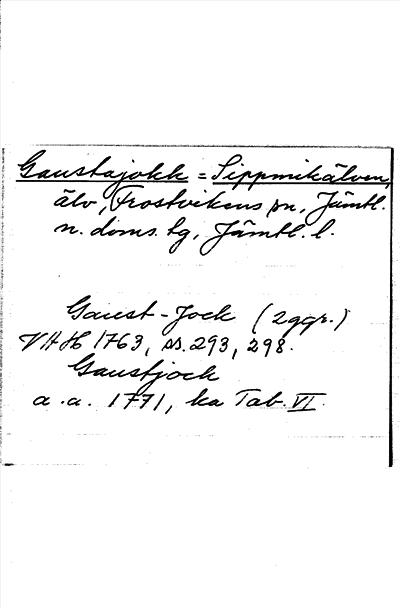 Gaustajokk = Sippmikälven,
älv, Frostvikens sn, Jämtl.
n. doms. tg, Jämtl. l.
Gaust-Jock (2 ggr.)
VHH 1763, ss. 293, 298.
Gaustjock
a. a. 1771, ka Tab. VI.